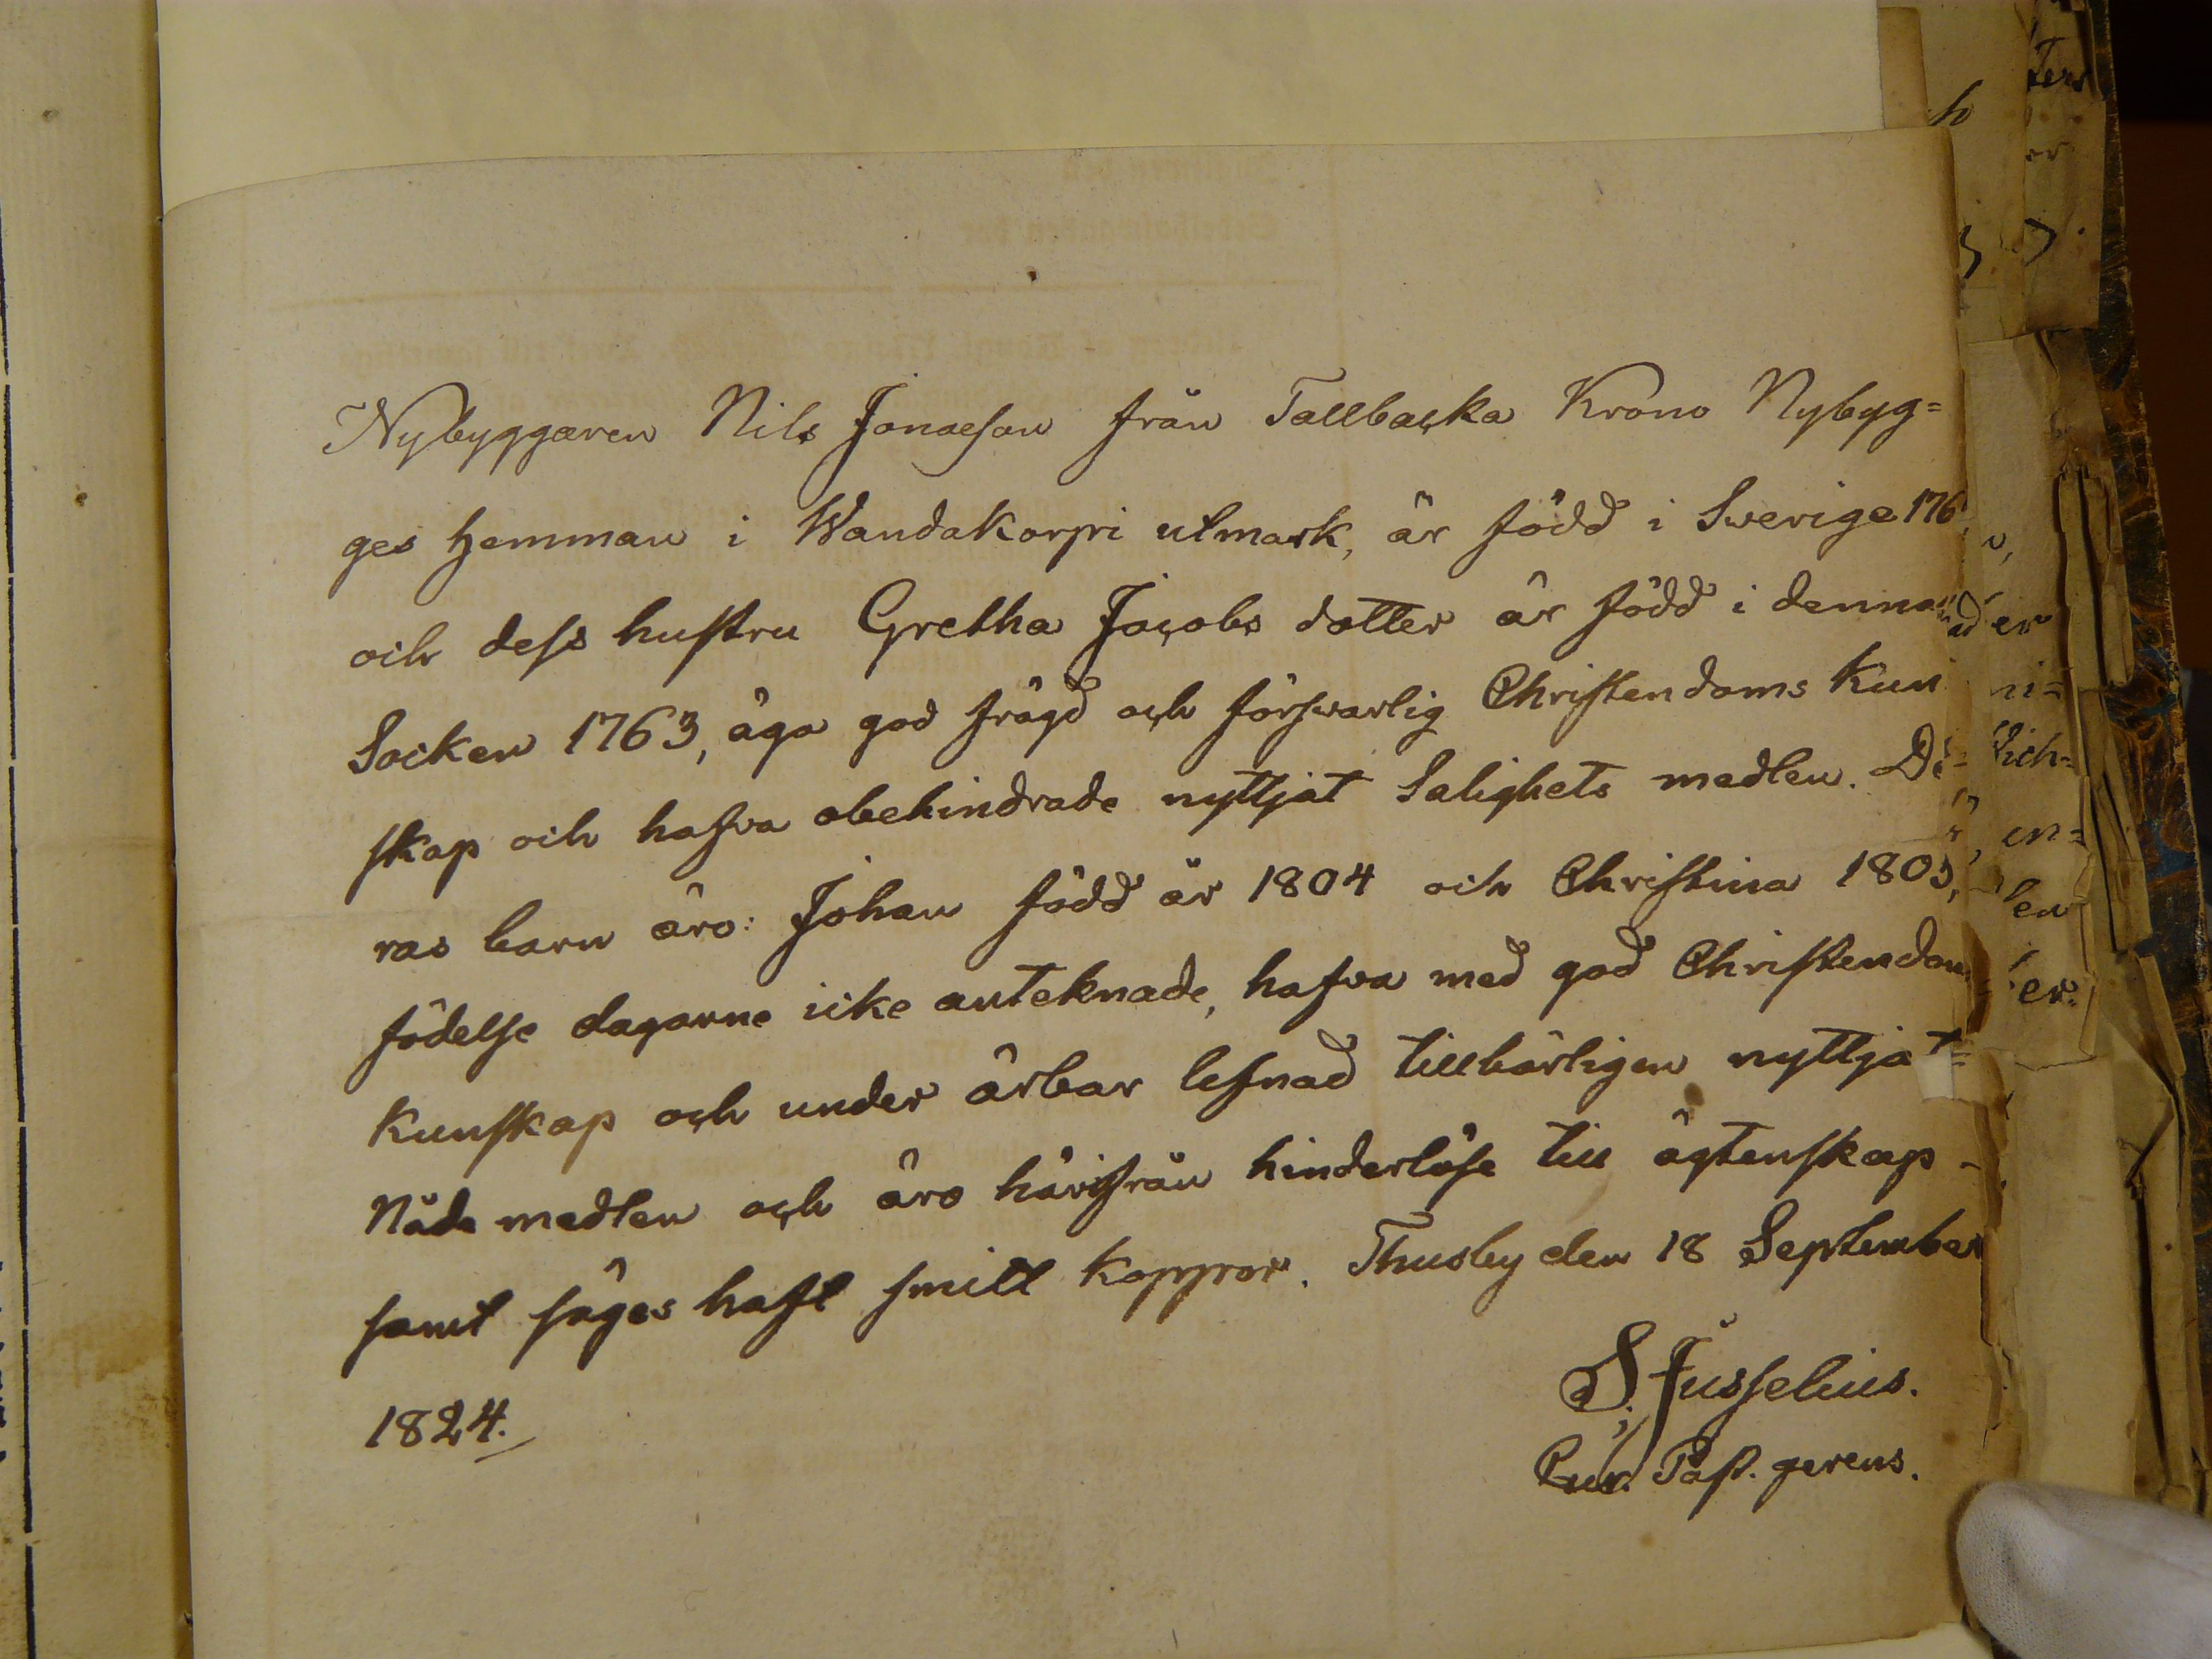 Nybyggaren Nils Jonaeson från Tallbacka Krono Nybyg=
ges hemman i Wandakorpi utmark, är född i Swerige 176
och dess hustru Gretha Jacobs dotter är född i denna
Socken 1763, äga god frägd och försvarlig Christendoms kun
skap och hafva obehindrade nyttjat Salighets medlen. De=
ras barn äro: Johan född år 1804 och Christina 1805,
födelse dagarne icke anteknade, hafva med god Christendom
Kunskap och under ärbar lefnad tillbörligen nyttjat
Nåde medlen och äro härifrån hinderlöse till ägtenskap -
samt säges haft smitt koppor. Thusby den 18 September
1824.
S. Jusselius.
Cur. Past. gerens.